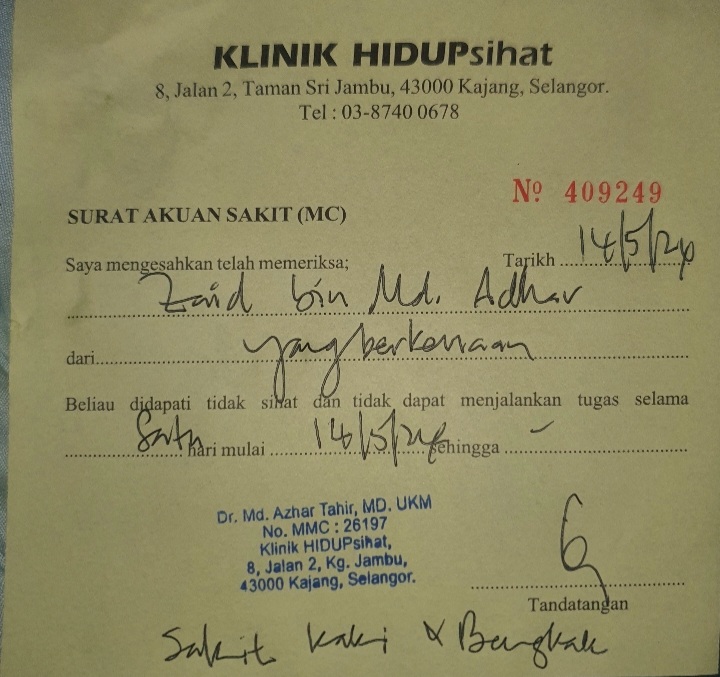 KLINIK HIDUPsihat
8, Jalan 2, Taman Sri Jambu, 43000 Kajang, Selangor.
Tel : 03-8740 0678
Nº 409249
SURAT AKUAN SAKIT (MC)
Saya mengesahkan telah memeriksa; Tarikh 14/5/24
Zaid bin Md. Adhar
dari yang berkenaan
Beliau didapati tidak sihat dan tidak dapat menjalankan tugas selama
Satu hari mulai 14/5/24 sehingga -
Dr. Md. Azhar Tahir, MD. UKM
No. MMC : 26197
Klinik HIDUPsihat,
8, Jalan 2, Kg. Jambu,
43000 Kajang, Selangor.
Tandatangan
Sakit kaki & Bengkak